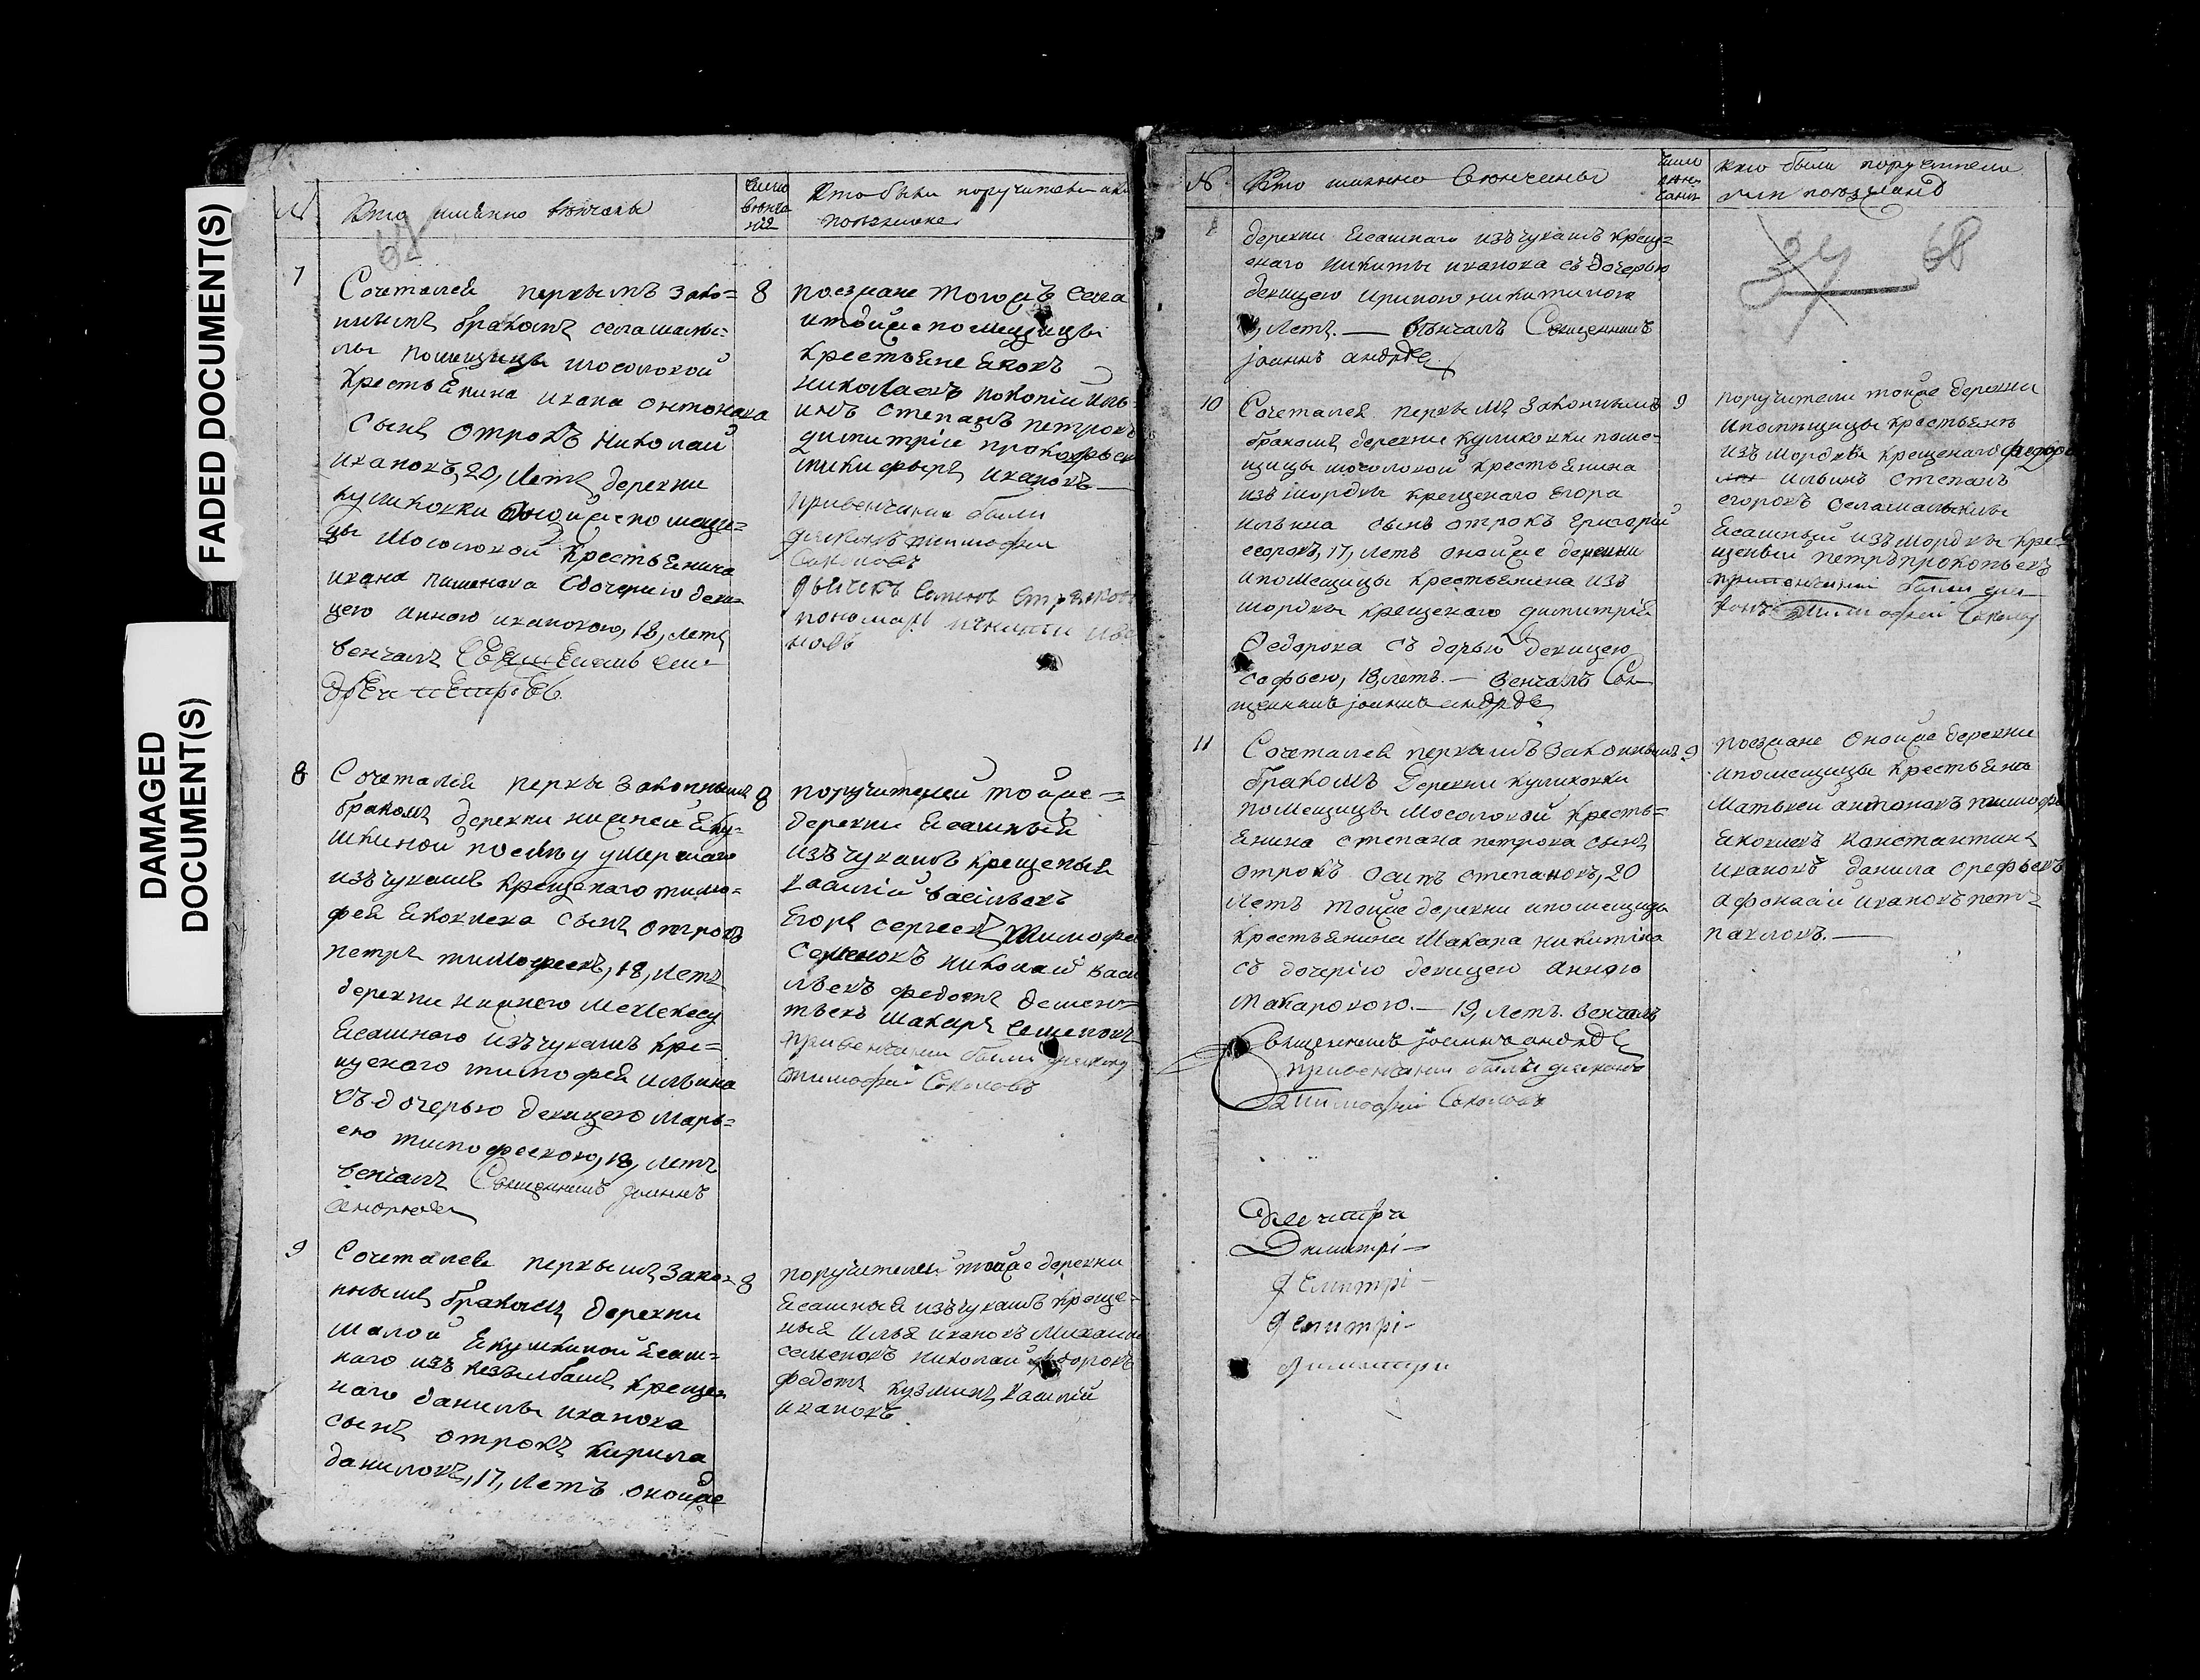 FADED DOCUMENT(S)
DAMAGED
DOCUMENT(S)
№
Кто имянно венчаны
число
венча
нія
Кто были поручители или
поезжане
67
7
Сочетался первымъ зако=
ннымъ бракомъ села
помещицы Мосоловой
крестьянина ивана онтонова
сынъ отрокъ Николай
ивановъ, 20, летъ деревни
куликовки оной же помещи=
цы Мосоловой крестьянина
ивана сдочерию деви=
цею анною ивановою, 18, летъ
венчалъ
8
поезжане тогожъ села
итойже помещицы
крестьяне яковъ
николаевъ
степанъ петровъ
димитрій прокофьев
никифоръ ивановъ
привенчании были
диаконъ тимофей
Соколовъ
дьячекъ Семенъ
пономарь ива
новъ
8
Сочетался первы законнымъ
бракомъ деревни нижней Яку=
шкиной умершаго
изъ чувашъ крещенаго тимо=
фея яковлева сынъ отрокъ
петръ тимофеевъ, 18, летъ
деревни нижнего Мелекесу
ясашного изъ чувашъ кре=
щеного тимофея ильина
съ дочерью девицею Марь=
ею тимофеевою, 18, летъ
венчалъ Священникъ Иоаннъ
8
поручителей тойже=
деревни ясашныя
изъ чувашъ крещеныя
василий васильевъ
Егоръ сергеевъ Тимофей
Семеновъ николай васи
льевъ федотъ демен=
тьевъ макаръ семеновъ
привенчании были диаконъ
тимофей Соколовъ
9
Сочетался первымъ зако=
ннымъ бракомъ деревни
малой Якушкиной ясаш=
наго изъ кезылбашъ крещен
наго данилы иванова
сынъ отрокъ кирила
даниловъ, 17, летъ оной же
8
поручители тойже деревни
ясашныя изъ чувашъ креще=
ныя Илья ивановъ Михаила
семеновъ николай федоровъ
федотъ кузминъ василий
ивановъ
№
Кто имянно венчаны
число
венч
ания
кто были поручители
или поезжанъ
37
68
деревни ясашнаго изъ чувашъ крещ=
енаго никиты иванова съ дочерью
девицею ириною никитиною
летъ.— венчалъ Священникъ
Iоаннъ
10
Сочетался первымъ законнымъ
бракомъ деревни куликовки поме=
щицы мосоловой крестьянина
изъ мордвы крещенаго егора
ильина сынъ отрокъ григорий
егоровъ, 17, летъ онойже деревни
ипомещицы крестьянина изъ
мордвы крещенаго димитрия
Федорова съ дочью девицею
софьею, 18, летъ.— венчалъ Свя
щенникъ Iоаннъ
9
поручители тойже деревни
ипомещицы крестьянъ
изъ мордвы крещенаго федоръ
ильинъ степанъ
егоровъ
ясашный изъ мордвы кре
щеный петръ прокопьевъ
привенчании были диа
конъ Тимофей Соколовъ
11
Сочетался первымъ законнымъ
бракомъ деревни куликовки
помещицы Мосоловой кресть=
янина степана петрова сынъ
отрокъ осипъ степановъ, 20
летъ тойже деревни ипомещицы
крестьянина Макара никитина
съ дочерию девицею анною
Макаровою.— 19, летъ. венчалъ
Священникъ Iоаннъ
привенчании были диаконъ
Тимофей Соколовъ
9
поезжане онойже деревни
ипомещицы крестьянъ
Матвей антоновъ тимофей
яковлевъ константинъ
ивановъ данила орефьевъ
афонасий ивановъ петръ
павловъ.—
Димитрі—
Демитрі—
Демитрі—